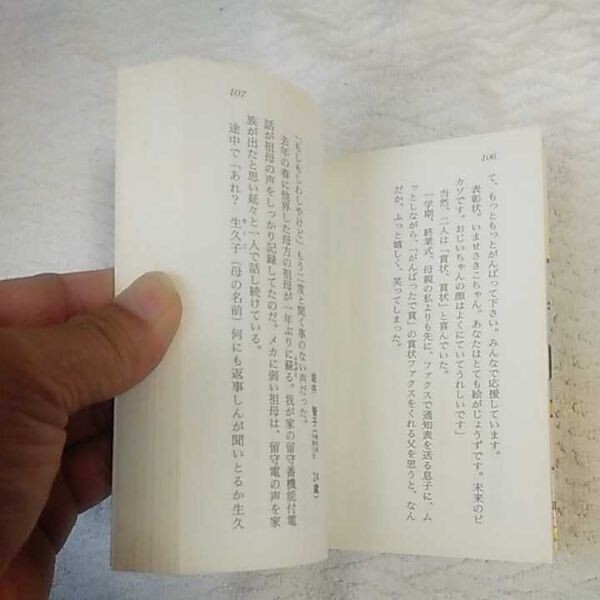 106
て、もっともっとがんばって下さい。みんなで応援しています。
表彰状。いませささこちゃん。あなたはとても絵がじょうずです。未来のピ
カソです。おじいちゃんの顔はよくにていてうれしいです」
当然、二人は「賞状、賞状」と喜んでいた。
一学期、終業式、母親の私よりも先に、ファクスで通知表を送る息子に、ム
ッとしながら、「がんばったで賞」の賞状ファクスをくれる父を思うと、なん
だか、ふっと嬉しく、笑ってしまった。
107
24歳
「もしもしわしやけど」もう二度と聞く事のない声だった。
去年の春に他界した母方の祖母が一年ぶりに蘇る。我が家の留守番機能付電
話が祖母の声をしっかり記録してたのだ。メカに弱い祖母は、留守電の声を家
族が出たと思い延々と一人で話し続けている。
途中で「あれ? 生久子（母の名前）何にも返事しんが聞いとるか生久